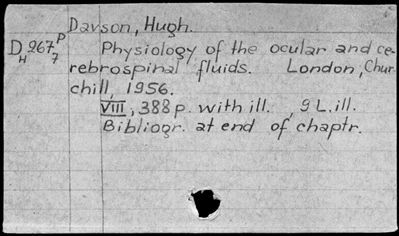 Davson, Hugh.
DH 267 P/7 Physiology of the ocular and ce-
rebrospinal fluids. London, Chur-
chill, 1956.
VIII, 388 p. with ill., 9 L. ill.
Bibliogr. at end of chaptr.